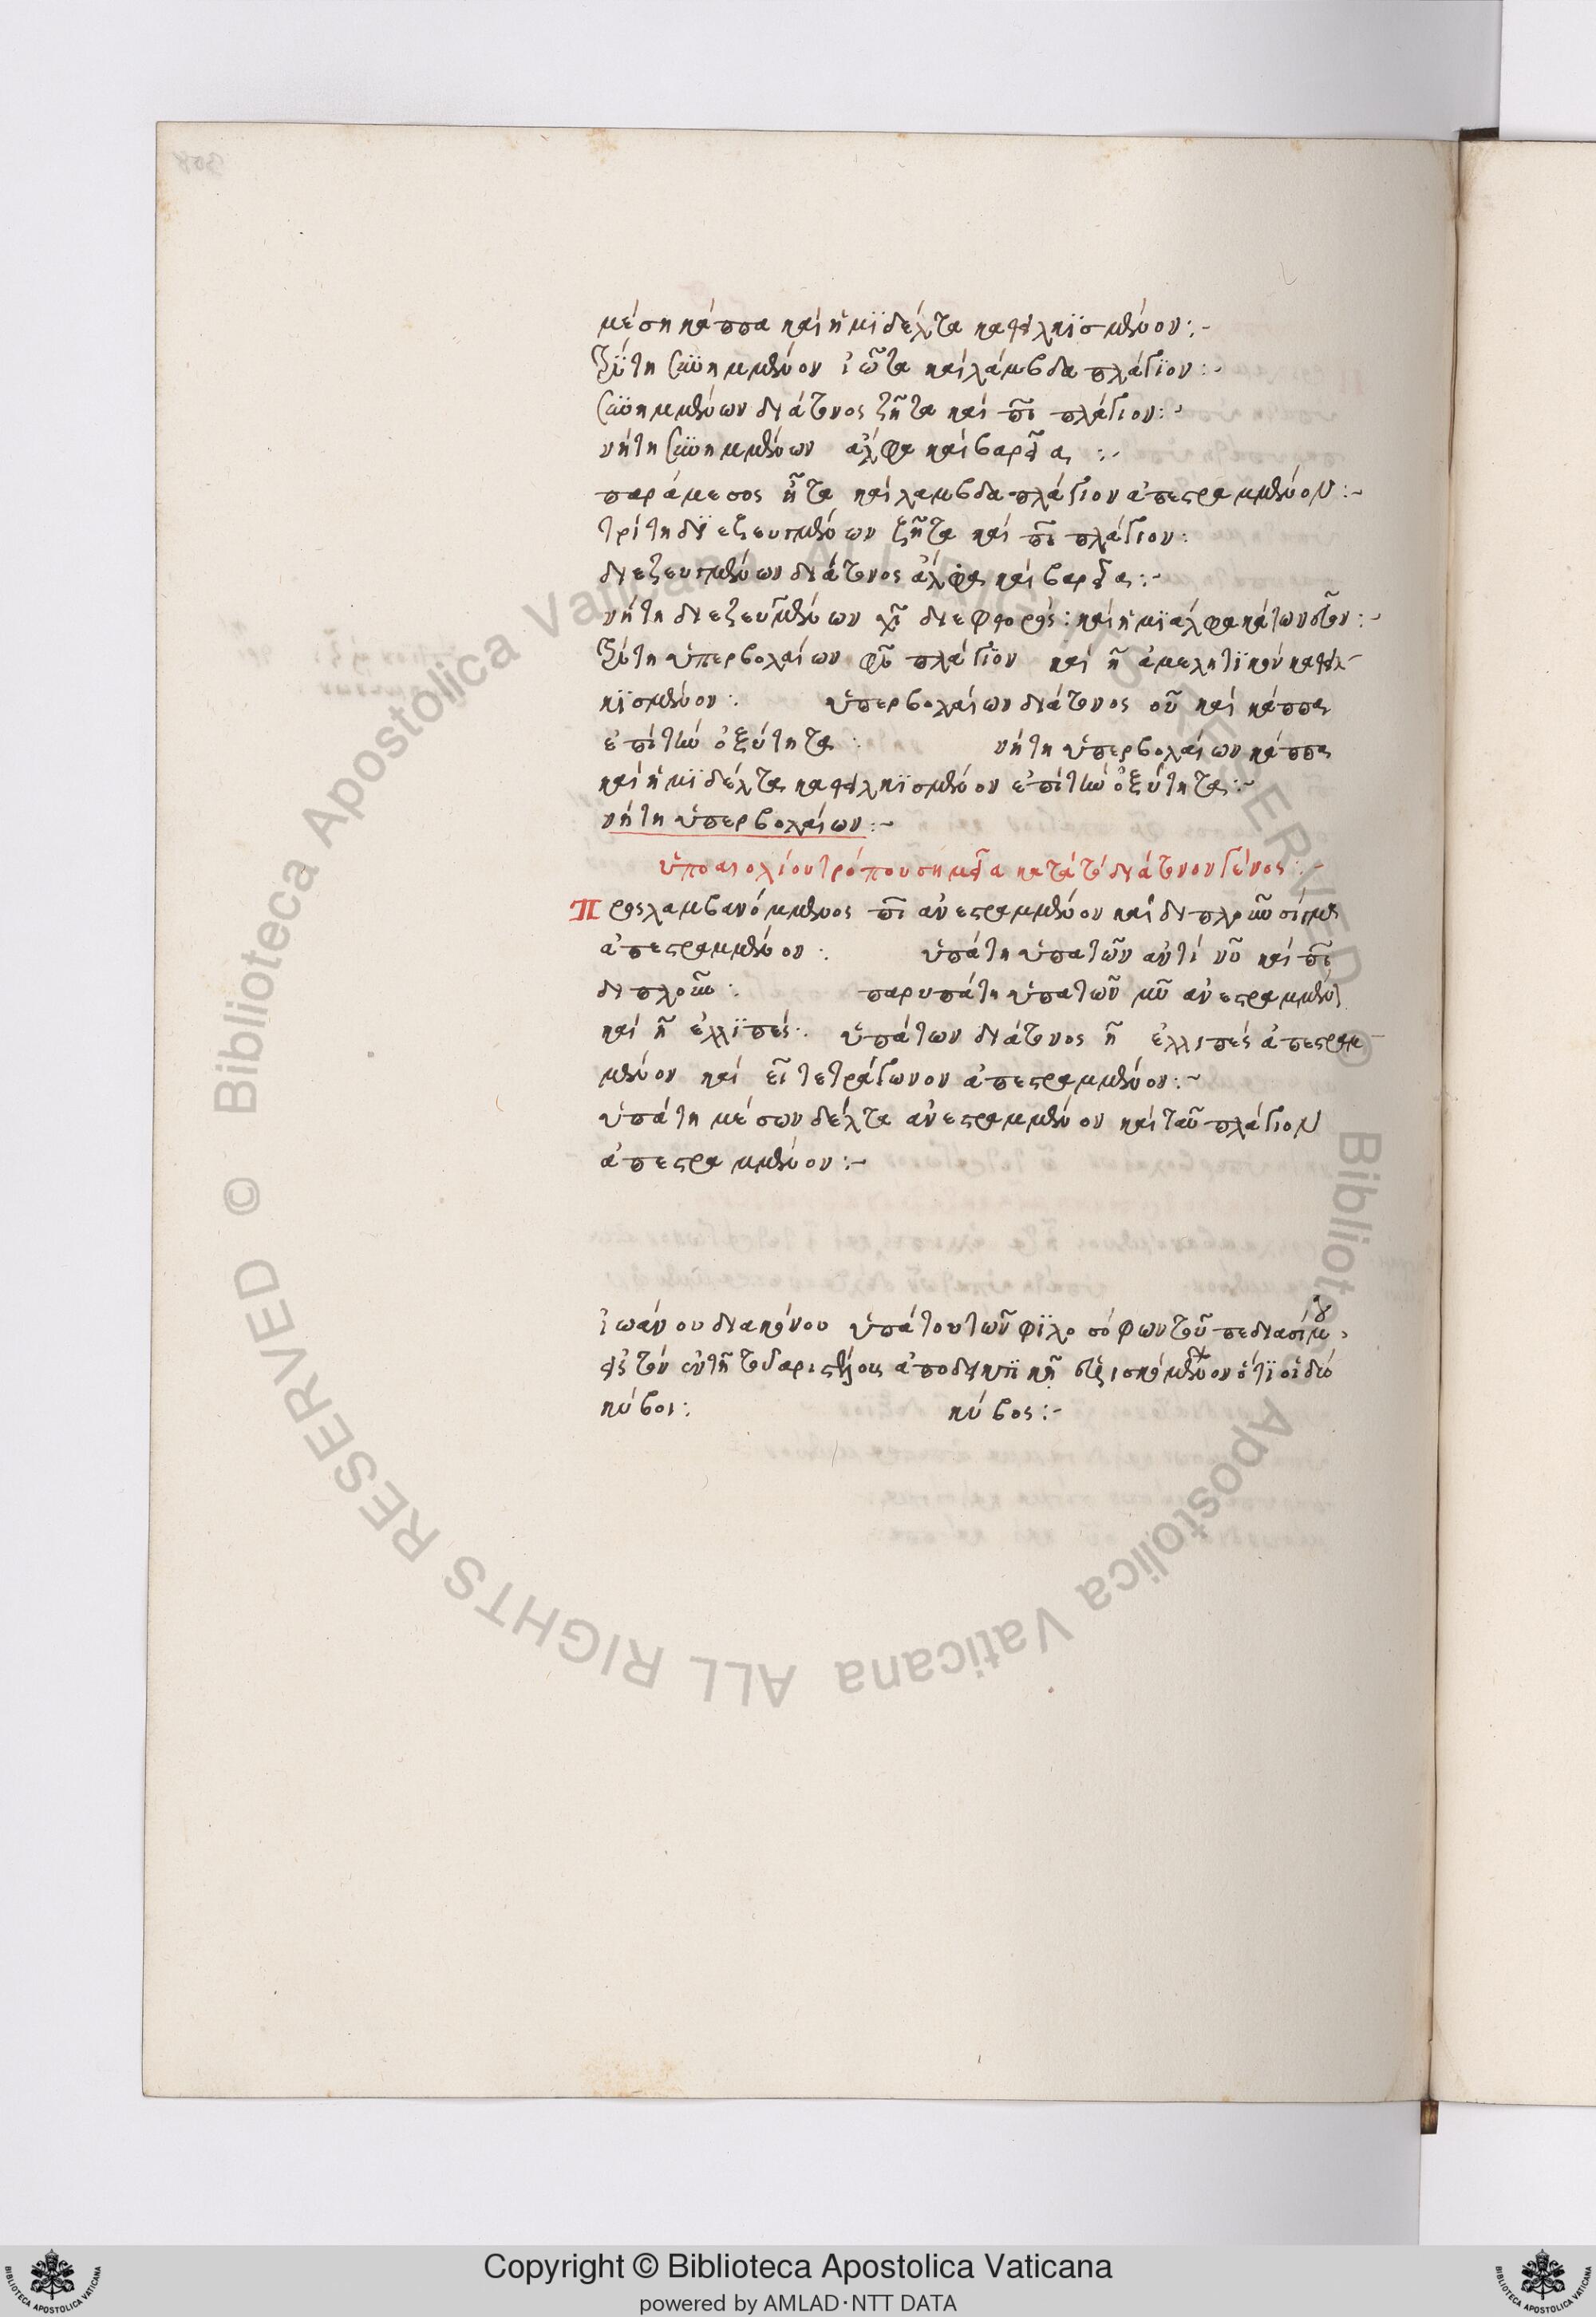 μέση κάππα καὶ ἥμϊ δέλτα καθελκϊσμένον:~
τρίτη συνημμένον ἰῶτα καὶ λάμβδα πλάγϊον:~
συνημμένων διάτονος ζῆτα καὶ πῖ πλάγιον:~
νήτη συνημμένων ἄλφα καὶ βαρεῖα :~
παράμεσος ἦτα καὶ λαμβδα πλάγιον ἀπεστραμμένον:~
τρίτη διεζευγμένων ζῆτα καὶ πῖ πλάγιον:
διεζευγμένων διάτονος ἄλφα καὶ βαρεῖα:~
νήτη διεζευγμένων χῖ διεφθορός: καὶ ἥμϊ αλφα κάτω νεῦον:~
τρίτη ὑπερβολαίων φῦ πλάγϊον καὶ ῆ ἀμελητϊκόν καθελ-
κϊσμένον: ὑπερβολαίων διάτονος οὖ καὶ κάππα
ἐπὶ τὴν ὀξύτητα: νήτη ὑπερβολαίων κάππα
καὶ ἥμϊ δέλτα καθελκϊσμένον ἐπὶ τὴν ὀξύτητα:~
νήτη ὑπερβολαίων:~
ὑποαιολίου τρόπου σημεῖα κατὰ τὸ διάτονον γένος:~
Προςλαμβανόμμενος πῖ ἀνεστραμμένον καὶ διπλοῦν σίγμα
ἀπεστραμμένον: ὑπάτη ὑπατῶν ἀντί νῦ καὶ πῖ
διπλοῦν: παρυπάτη ὑπατῶν μῦ ἀνεστραμμέν
καὶ ῆ ἐλλϊπές: ὑπάτων διάτονος ῆ ἐλλιπές ἀπεστραμ
μένον καὶ εῖ τετράγωνον ἀπεστραμμένον:~
ὑπάτη μέσων δέλτα ἀνεστραμμένον καὶ ταῦ πλάγϊον
ἀπεστραμμένον:~
ἰωάνου διακόνου ὑπάτου τῶν φϊλοσόφων τοῦ πεδιασίμου
εἰς τόν ἐν τῆ τοῦ ἀριστέλους ἀποδεικτϊκῆ ὅτϊ οἱ δύο
κύβοι: κύβος:~